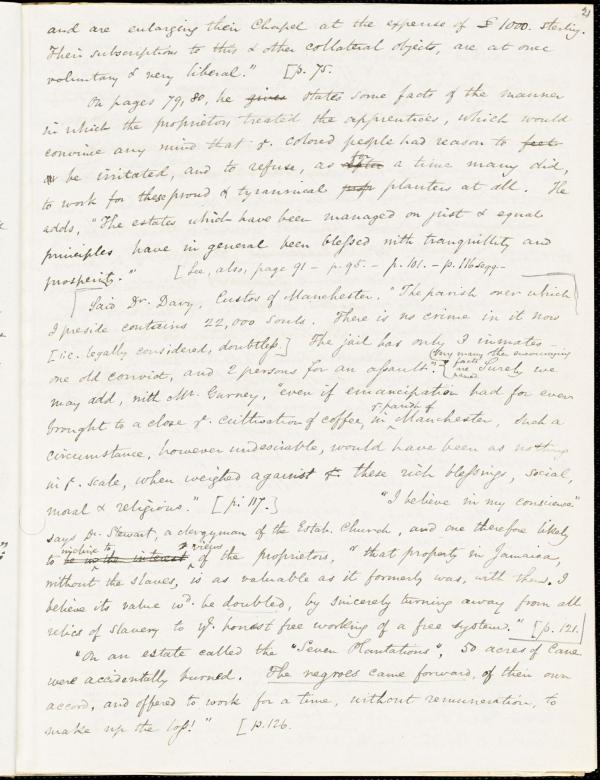 21
and are enlarging their Chapel at the expense of £1000. sterling.
Their subscriptions to this & other collateral objects, are at once
voluntary & very liberal." [p. 75.
On pages 79, 80, he gives states some facts of the manner
in which the proprietors treated the apprentices, which would
convince any mind that ye. colored people had reason to feel
be irritated, and to refuse, as for a time many did,
to work for these proud & tyrannical planters at all. He
adds, "The estates which have been managed on just & equal
principles have in general been blessed with tranquillity and
prosperity." [See, also, page 91 - p. 95. - p. 101. - p. 116 seqq. -
[Said Dr. Davy, Custos of Manchester. "The parish over which
I preside contains 22,000 souls. There is no crime in it now
[i.e. legally considered, doubtless.] The jail has only 3 inmates -
one old convict, and 2 persons for an assault." Surely we
may add, with Mr. Gurney, "even if emancipation had for ever
brought to a close ye. cultivation of coffee, in ye parish of Manchester, such a
circumstance, however undesirable, would have been as nothing
in ye. scale, when weighed against these rich blessings, social,
moral & religious." [p. 117.] "I believe in my conscience"
says Dr. Stewart, a clergyman of the Estab. Church, and one therefore likely
to incline to be in the interest views of the proprietors, "that property in Jamaica,
without the slaves, is as valuable as it formerly was, with them. I
believe its value wd. be doubled, by sincerely turning away from all
relics of slavery to ye. honest free working of a free system." [p. 121.]
"On an estate called the "Seven Plantations", 50 acres of Cane
were accidentally burned. The negroes came forward, of their own
accord, and offered to work for a time, without remuneration, to
make up the loss!" [p. 126.